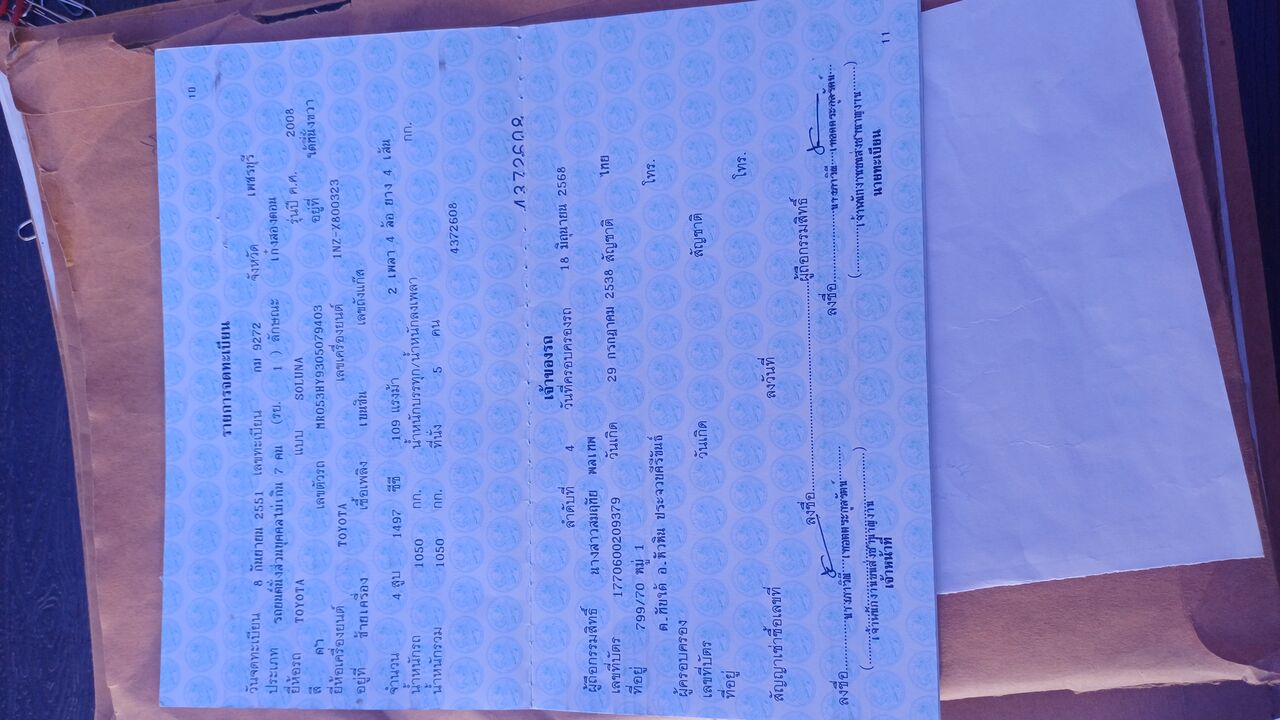 10
รายการจดทะเบียน
วันจดทะเบียน 8 กันยายน 2551 เลขทะเบียน กม 9272 จังหวัด เพชรบุรี
ประเภท รถยนต์นั่งส่วนบุคคลไม่เกิน 7 คน (รย. 1 ) ลักษณะ เก๋งสองตอน
ยี่ห้อรถ TOYOTA แบบ SOLUNA รุ่นปี ค.ศ. 2008
สี ดำ เลขตัวรถ MR053HY9305079403 อยู่ที่ ใต้ที่นั่งขวา
ยี่ห้อเครื่องยนต์ TOYOTA เลขเครื่องยนต์ 1NZ-X800323
อยู่ที่ ซ้ายเครื่อง เชื้อเพลิง เบนซิน เลขถังแก๊ส
จำนวน 4 สูบ 1497 ซีซี 109 แรงม้า 2 เพลา 4 ล้อ ยาง 4 เส้น
น้ำหนักรถ 1050 กก. น้ำหนักบรรทุก/น้ำหนักลงเพลา กก.
น้ำหนักรวม 1050 กก. ที่นั่ง 5 คน
4372608
4372608
เจ้าของรถ
ลำดับที่ 4 วันที่ครอบครองรถ 18 มิถุนายน 2568
ผู้ถือกรรมสิทธิ์ นางสาวสมฤทัย พลเทพ
เลขที่บัตร 1770600209379 วันเกิด 29 กรกฎาคม 2538 สัญชาติ ไทย
ที่อยู่ 799/70 หมู่ 1 โทร.
ต.ทับใต้ อ.หัวหิน ประจวบคีรีขันธ์
ผู้ครอบครอง
เลขที่บัตร วันเกิด สัญชาติ
ที่อยู่ โทร.
สัญญาเช่าซื้อเลขที่ ลงวันที่
ลงชื่อ ผู้ถือกรรมสิทธิ์
ลงชื่อ ลงชื่อ
เจ้าหน้าที่ นายทะเบียน
11